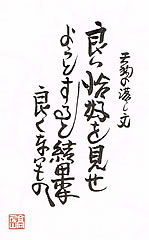 天狗の落し文
良い恰好を見せ
ようとすると結果
良くないもの